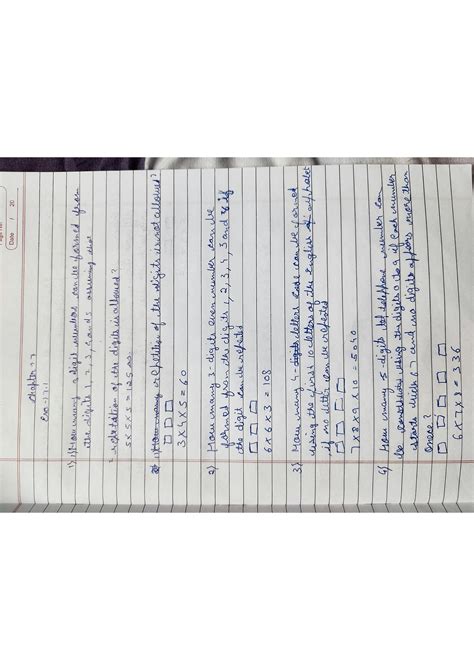 Page No.
Date / / 20
Chapter - 7
Exe - 7.1
1) i) How many 3 digit numbers can be formed from
the digits 1, 2, 3, 4 and 5 assuming that
repetation of the digits is allowed?
5 x 5 x 5 = 125 ans.
ii) How many repetition of the digits is not allowed?
3 x 4 x 5 = 60
2) How many 3-digits even number can be
formed from the digits 1, 2, 3, 4, 5 and 6 if
the digit can be repeted
6 x 6 x 3 = 108
3) How many 4-digits letters code can be formed
using the first 10 letters of the English alphabet
if no letter can be repeted
7 x 8 x 9 x 10 = 5040
4) How many 5 digits tel telephone number can
be constructed using the digits 0 to 9 if each number
starts with 67 and no digit appears more than
once?
6 x 7 x 8 = 336